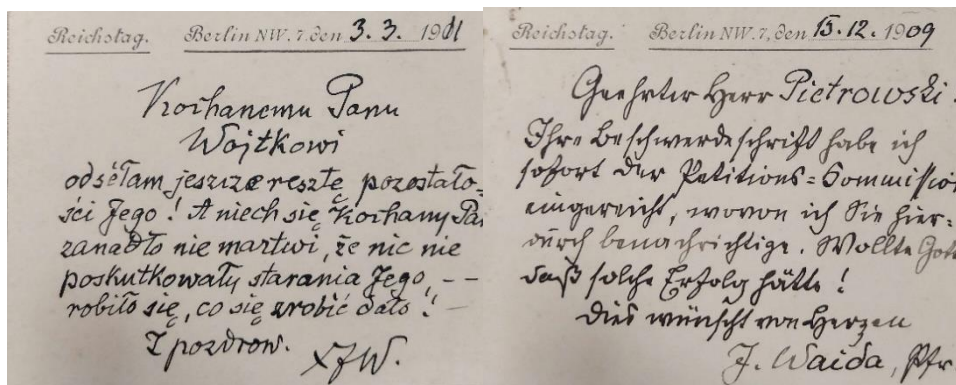 Reichstag. Berlin NW. 7, den 3. 3. 1911
Kochanemu Panu
Wojtkowi
odsełam jeszcze resztę pozostało-
ści Jego! A niech się Kochany Pa
zanadto nie martwi, że nic nie
poskutkowały starania Jego, --
robiło się, co się zrobić dało! -
Z pozdrow.
XJW.
Reichstag. Berlin NW. 7, den 15. 12. 1909
Geehrter Herr Pietrowski.
Ihre Beschwerdeschrift habe ich
sofort der Petitions=Commission
eingereicht, wovon ich Sie hier=
durch benachrichtige. Wollte Gott
daß solche Erfolg hätte!
Dies wünscht von Herzen
J. Wajda, Pfr